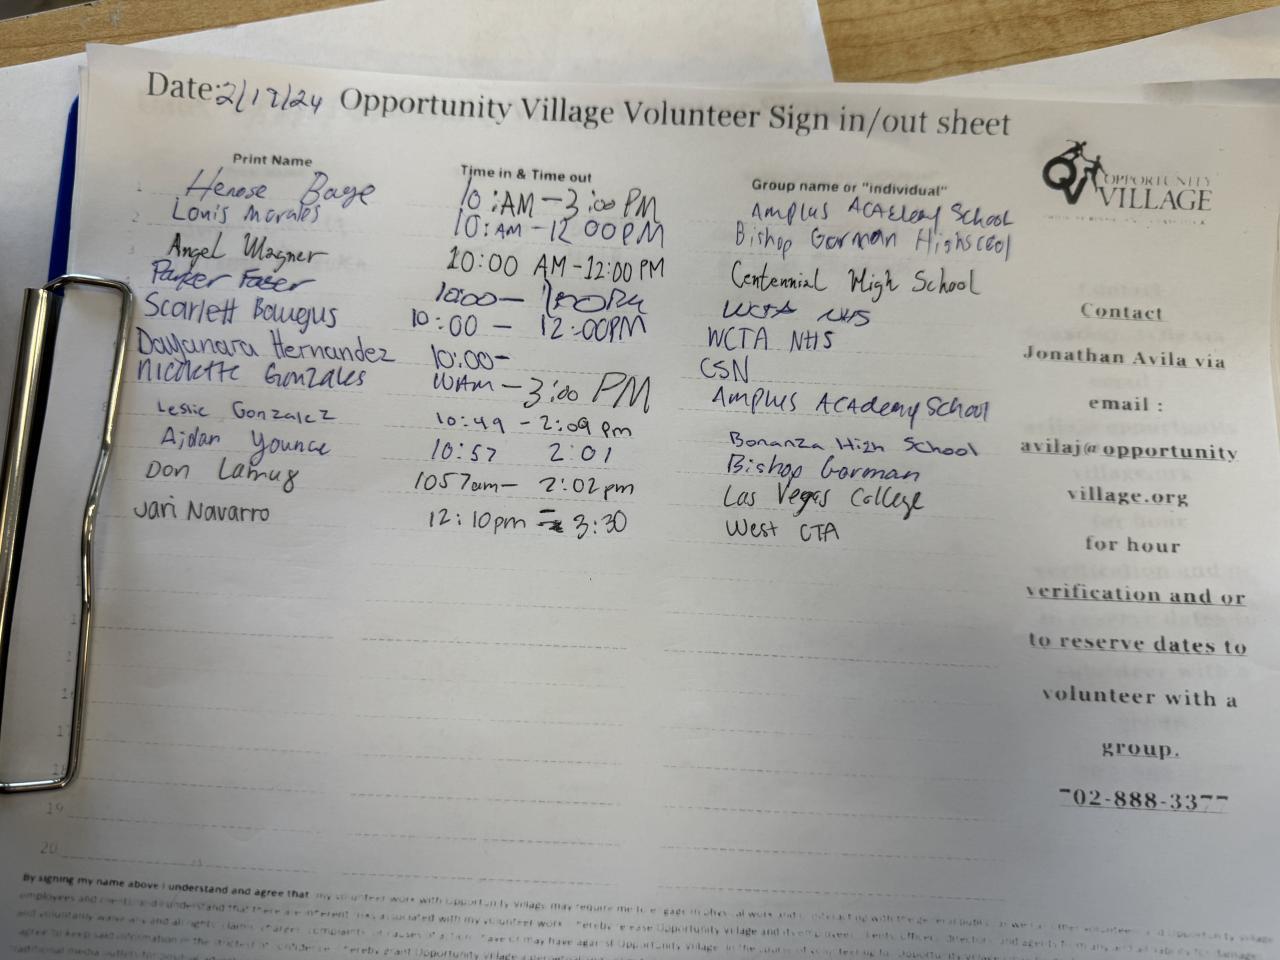 Date: 2/17/24 Opportunity Village Volunteer Sign in/out sheet
Print Name Time in & Time out Group name or "individual"
OPPORTUNITY VILLAGE
1 Henose Baye 10:AM-3:00 PM Amplus ACAdemy School
2 Louis Morales 10:AM-12 00PM Bishop Gorman Highscool
Angel Wagner 10:00 AM-12:00 PM Centennial High School
Parker Faser 10:00- WCTA NHS
Scarlett 10:00 - 12:00PM WCTA NHS
Dayanara Hernandez 10:00- CSN
Nicolette Gonzales 10AM-3:00 PM Amplus ACAdemy School
Leslie Gonzalez 10:49 - 2:09 pm Bonanza High School
Aidan Younce 10:57 2:01 Bishop Gorman
Don Lamug 1057am- 2:02pm Las Vegas College
Jari Navarro 12:10pm - 3:30 West CTA
19
20
Contact
Jonathan Avila via
email :
avilaj@opportunity
village.org
for hour
verification and or
to reserve dates to
volunteer with a
group.
702-888-3377
By signing my name above I understand and agree that my volunteer work with Opportunity Village may require me to engage in physical work and